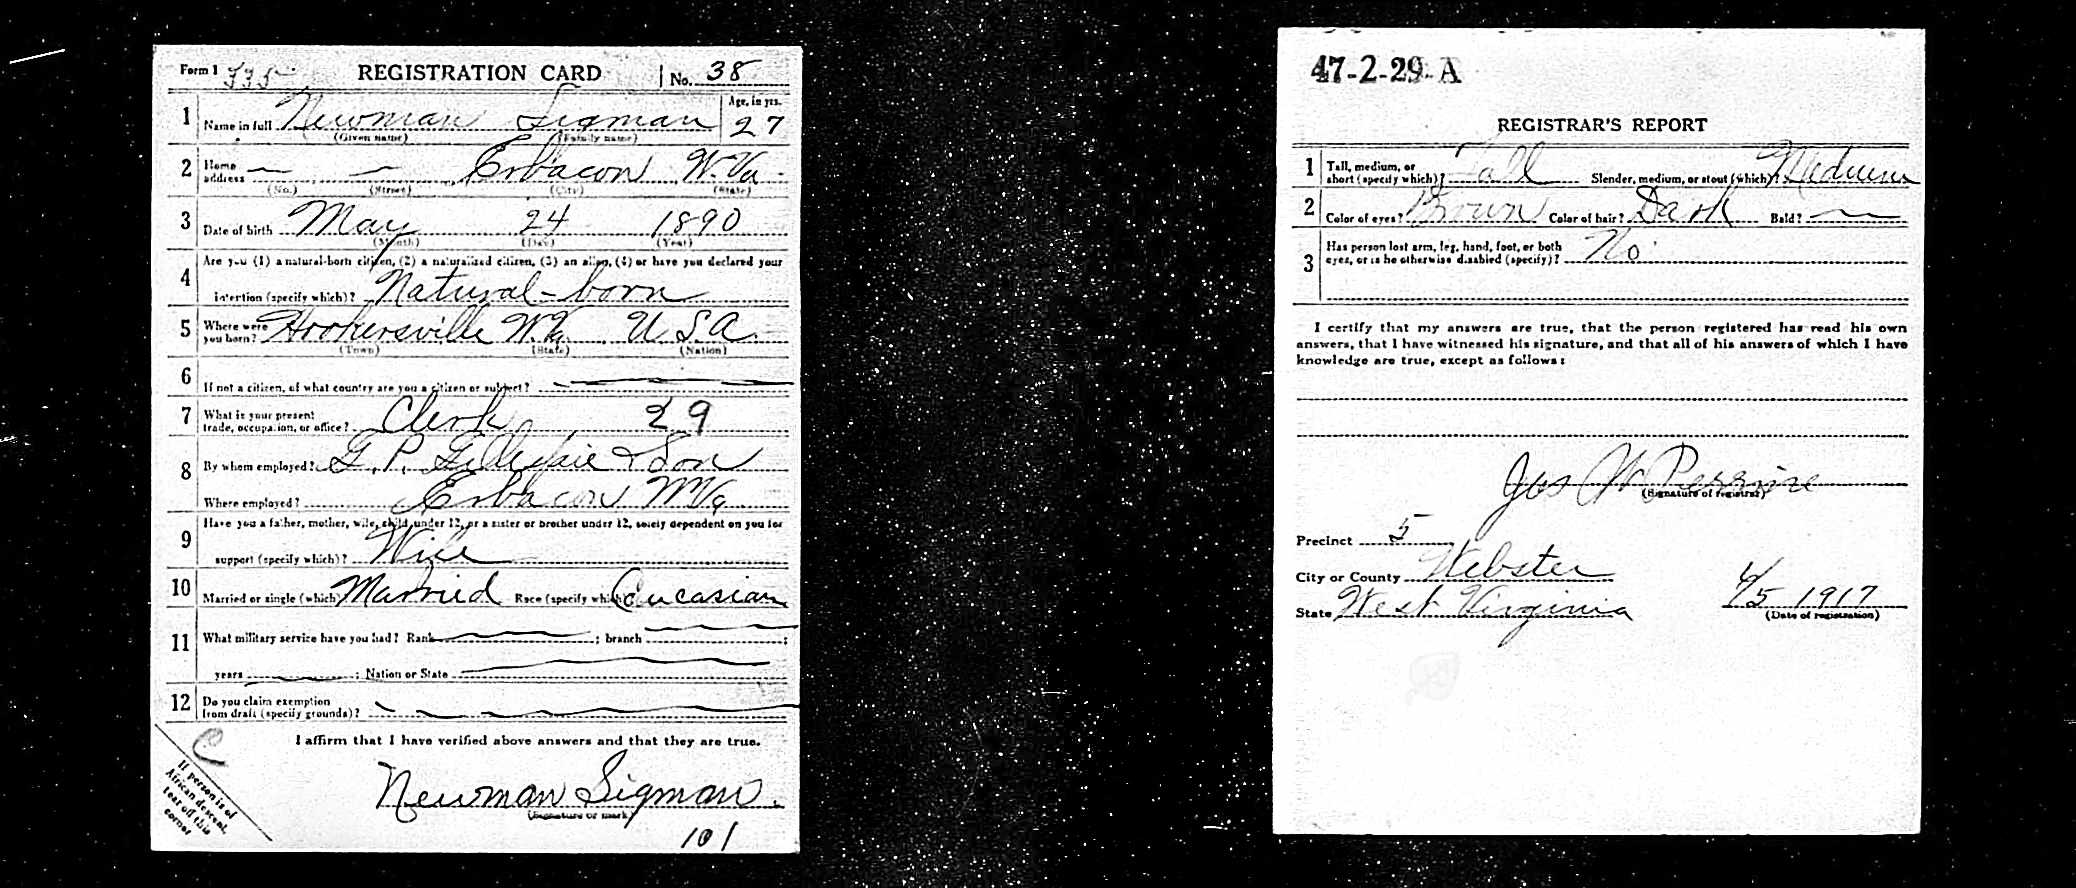 Form 1 735 REGISTRATION CARD No. 38
1 Name in full Newman Sigman Age, in yrs. 27
(Given name) (Family name)
2 Home address — — Erbacon W. Va
(No.) (Street) (City) (State)
3 Date of birth May 24 1890
(Month) (Day) (Year)
4 Are you (1) a natural-born citizen, (2) a naturalized citizen, (3) an alien, (4) or have you declared your
intention (specify which)? Natural-born
5 Where were you born? Hookersville W. Va. U S A.
(Town) (State) (Nation)
6 If not a citizen, of what country are you a citizen or subject?
7 What is your present trade, occupation, or office? Clerk 29
8 By whom employed? G. P. Gillespie & Son
Where employed? Erbacon W Va
9 Have you a father, mother, wife, child under 12, or a sister or brother under 12, solely dependent on you for
support (specify which)? Wife
10 Married or single (which) Married Race (specify which) Caucasian
11 What military service have you had? Rank ; branch ;
years ; Nation or State
12 Do you claim exemption
from draft (specify grounds)?
I affirm that I have verified above answers and that they are true.
C
If person is of
African descent,
tear off this
corner
Newman Sigman.
(Signature or mark)
101
47-2-29-A
REGISTRAR'S REPORT
1 Tall, medium, or short (specify which)? Tall Slender, medium, or stout (which)? Medium
2 Color of eyes? Brown Color of hair? Dark Bald? —
3 Has person lost arm, leg, hand, foot, or both
eyes, or is he otherwise disabled (specify)? No.
I certify that my answers are true, that the person registered has read his own
answers, that I have witnessed his signature, and that all of his answers of which I have
knowledge are true, except as follows:
Jas W Perrine
(Signature of registrar)
Precinct 5
City or County Webster
State West Virginia
6/5 1917
(Date of registration)